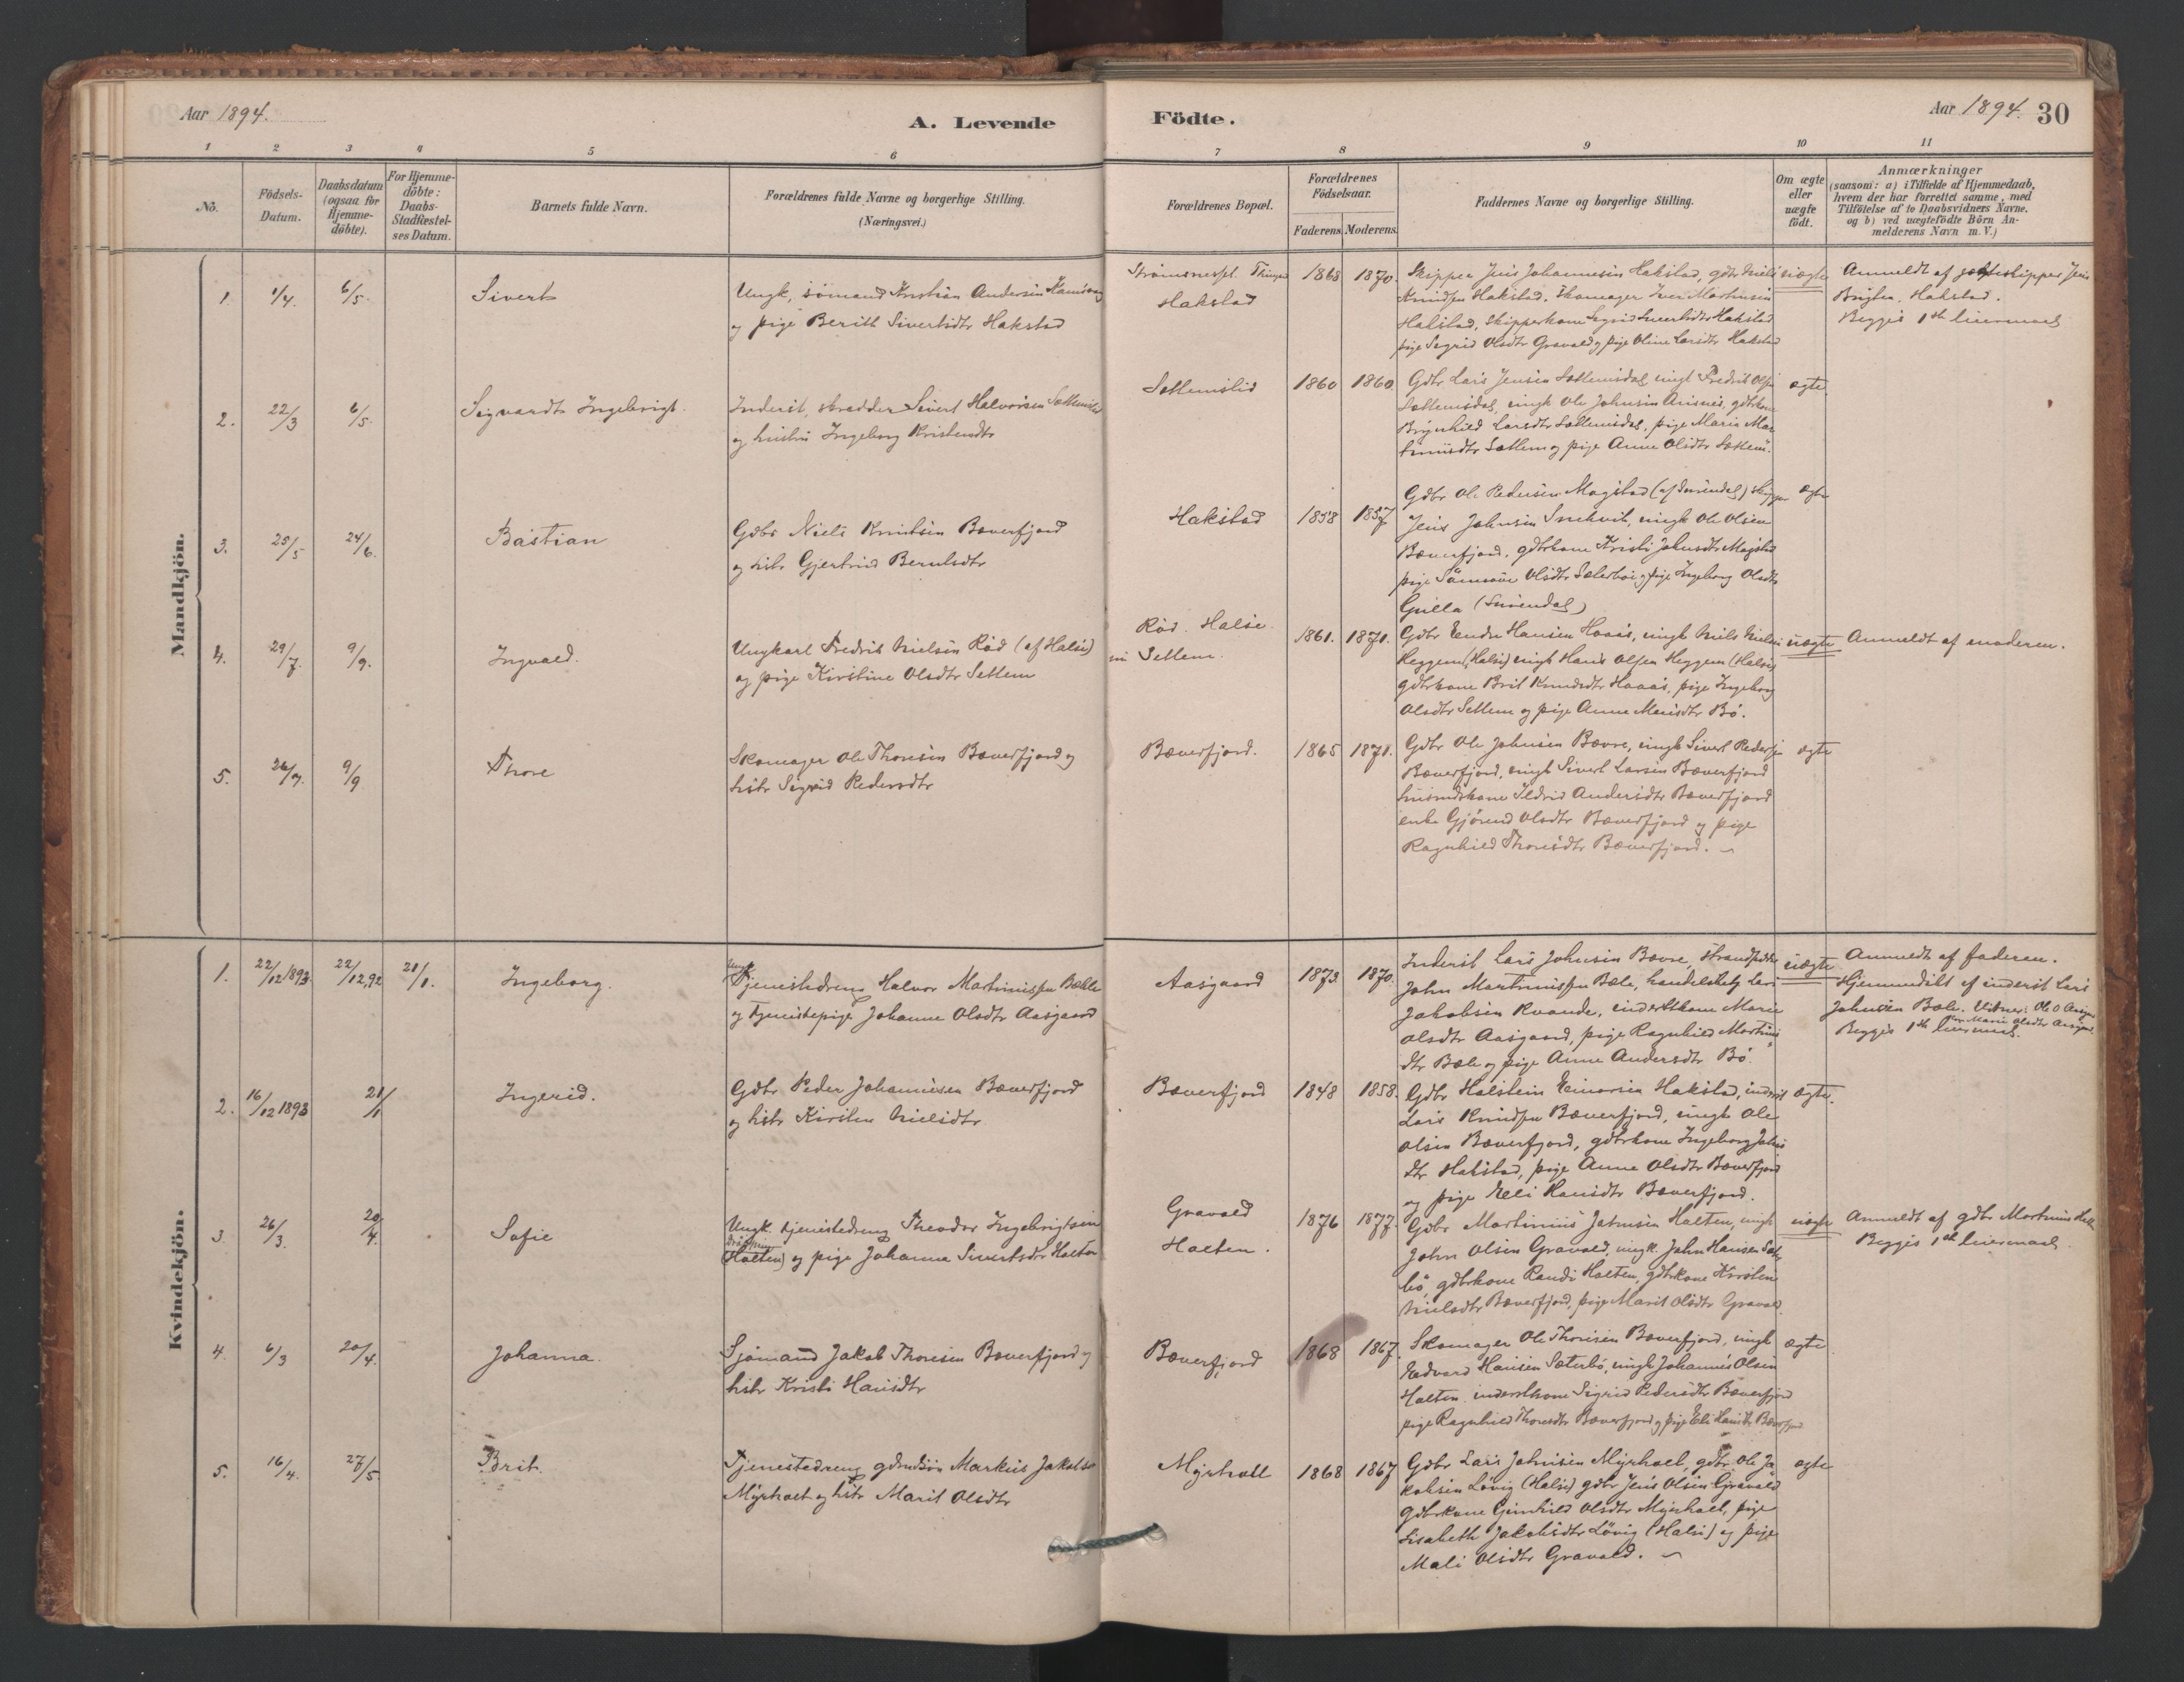 Aar 1894.
A. Levende Födte.
Aar 1894. 30
1 2 3 4 5 6 7 8 9 10 11
No.
Födsels-Datum.
Daabsdatum (ogsaa for Hjemme-döbte).
For Hjemme-döbte: Daabs-Stadfæstel-ses Datum.
Barnets fulde Navn.
Forældrenes fulde Navne og borgerlige Stilling. (Næringsvei.)
Forældrenes Bopæl.
Forældrenes Födselsaar.
Faderens. Moderens.
Faddernes Navne og borgerlige Stilling.
Om ægte eller uægte födt.
Anmærkninger (saasom: a) i Tilfælde af Hjemmedaab, hvem der har forrettet samme, med Tilföielse af to Daabsvidners Navne, og b) ved uægtefödte Börn An-melderens Navn m. V.)
Mandkjön.
1. 1/4. 6/5. Sivert
Ungk, sömand Kristian Andersen
og pige Beritt Sivertsdtr Hakstad
Hakstad
1868 1870.
Skipper Jens Johannesen Hakstad, gdbr Niels
Knudsen Hakstad, Skomager Iver Martinsen
Hakstad, Skipperkone Sigrid Sivertsdtr Hakstad
pige Sigrid Olsdtr Gravald og pige Oline Larsdtr Hakstad
uægte
Anmeldt af jagtskipper Jens
Hakstad.
Begges 1ste leiermaal
2. 22/3 6/5. Sigvardt Ingebrigt.
Inderst, skredder Sivert Halvorsen Settemslid
og hustru Ingeborg Kristensdtr
Settemslid
1860 1860
Gdbr Lars Jensen Settemsdal, ungk Fredrik Olsen
Settemsdal, ungk Ole Johnsen Aasnes, gdbrkone
Brynhild Larsdtr Settemsdal, pige Marie Mar
tinusdtr Settem og pige Anne Olsdtr Settem.
ægte.
3. 25/5 24/6. Bastian
Gdbr Niels Knudsen Bæverfjord
og hstr Gjertrud Berntsdtr
Hakstad
1858 1857
Gdbr Ole Pedersen Magstad (af Surendal) skipper
Jens Johnsen Snekvik, ungk Ole Olsen
Bæverfjord, gdbrkone Kristi Johnsdtr Magstad
pige Olsdtr Sæterbö og pige Ingeborg Olsdtr
Gulla (Surendal)
ægte
4. 29/7. 9/9. Ingvald.
Ungkarl Fredrik Nielsen Röd (af Halse)
og pige Kirstine Olsdtr Settem
Röd. Halse
Settem.
1861. 1871.
Gdbr Endre Hansen Haaes, ungk Nils Nielsen
Heggem (Halse) ungk Hans Olsen Heggem (Halse)
gdbrkone Brit Knudsdtr Haaes, pige Ingeborg
Olsdtr Settem og pige Anne Monsdtr Bö.
uægte
Anmeldt af moderen.
5. 26/7. 9/9 Thore
Skomager Ole Thoresen Bæverfjord og
hstr Sigrid Pedersdtr
Bæverfjord.
1865 1871.
Gdbr Ole Johnsen Bævre, ungk Sivert Pedersen
Bæverfjord, ungk Sivert Larsen Bæverfjord
husmdskone Ildrid Andersdtr Bæverfjord
enke Gjörond Olsdtr Bæverfjord og pige
Ragnhild Thoresdtr Bæverfjord.
ægte
Kvindekjön.
1. 22/12 1893. 22/12.92 21/1. Ingeborg.
Ungk
Tjenestedreng Halvor Martinussen Bæle
og Tjenestepige Johanne Olsdtr Aasgaard
Aasgaard
1873. 1870.
Inderst Lars Johnsen Bævre, strandsidder
John Martinussen Bæle, handelsbetj Lars
Jakobsen Kvande, inderstkone Marie
Olsdtr Aasgaard, pige Ragnhild Martinus
dtr Bæle og pige Anne Andersdtr Bö.
uægte
Anmeldt af faderen.
Hjemmedöbt af inderst Lars
Johnsen Bæle. Vidner: Ole O Aasgaard
Marie Olsdtr Aasgaard.
Begges 1ste leiermaal.
2. 16/12 1893 21/1 Ingerid.
Gdbr Peder Johannesen Bæverfjord
og hstr Kirsten Nielsdtr
Bæverfjord
1848 1858.
Gdbr Halstein Einarsen Hakstad, inderst
Lars Knudsen Bæverfjord, ungk Ole
Olsen Bæverfjord, gdbrkone Ingeborg Johns
dtr Hakstad, pige Anne Olsdtr Bæverfjord
og pige Eli Hansdtr Bæverfjord.
ægte.
3. 26/3. 20/4. Sofie
Ungk. tjenestedreng Theodor Ingebrigtsen
(Halten) og pige Johanna Sivertsdtr Halten
Gravald
Halten.
1876 1877.
Gdbr Martinus Johnsen Halten, ungk
John Olsen Gravald, ungk. John Hansen Sæter
bö, gdbrkone Randi Halten, gdbrkone Kirsten
Nielsdtr Bæverfjord, pige Marit Olsdtr Gravald.
uægte
Anmeldt af gdbr Martinus Halten
Begges 1ste leiermaal.
4. 6/3 20/4. Johanna.
Sjömand Jakob Thoresen Bæverfjord og
hstr Kristi Hansdtr
Bæverfjord
1868 1867.
Skomager Ole Thoresen Bæverfjord, ungk
Edvard Hansen Sæterbö, ungk Johannes Olsen
Halten, inderstkone Sigrid Pedersdtr Bæverfjord
pige Ragnhild Thoresdtr Bæverfjord og pige Eli Hansdtr Bæverfjord.
ægte
5. 16/4. 27/5. Brit.
Tjenestedreng gdmdsön Markus Jakobs
Myrholt og hstr Marit Olsdtr
Myrholt
1868 1867
Gdbr Lars Johnsen Myrholt, gdbr. Ole Ja
kobsen Lövig (Halse) gdbr Jens Olsen Gravald
Gdbrkone Gunhild Olsdtr Myrholt, pige
Lisabeth Jakobsdtr Lövig (Halse) og pige
Mali Olsdtr Gravald.
ægte